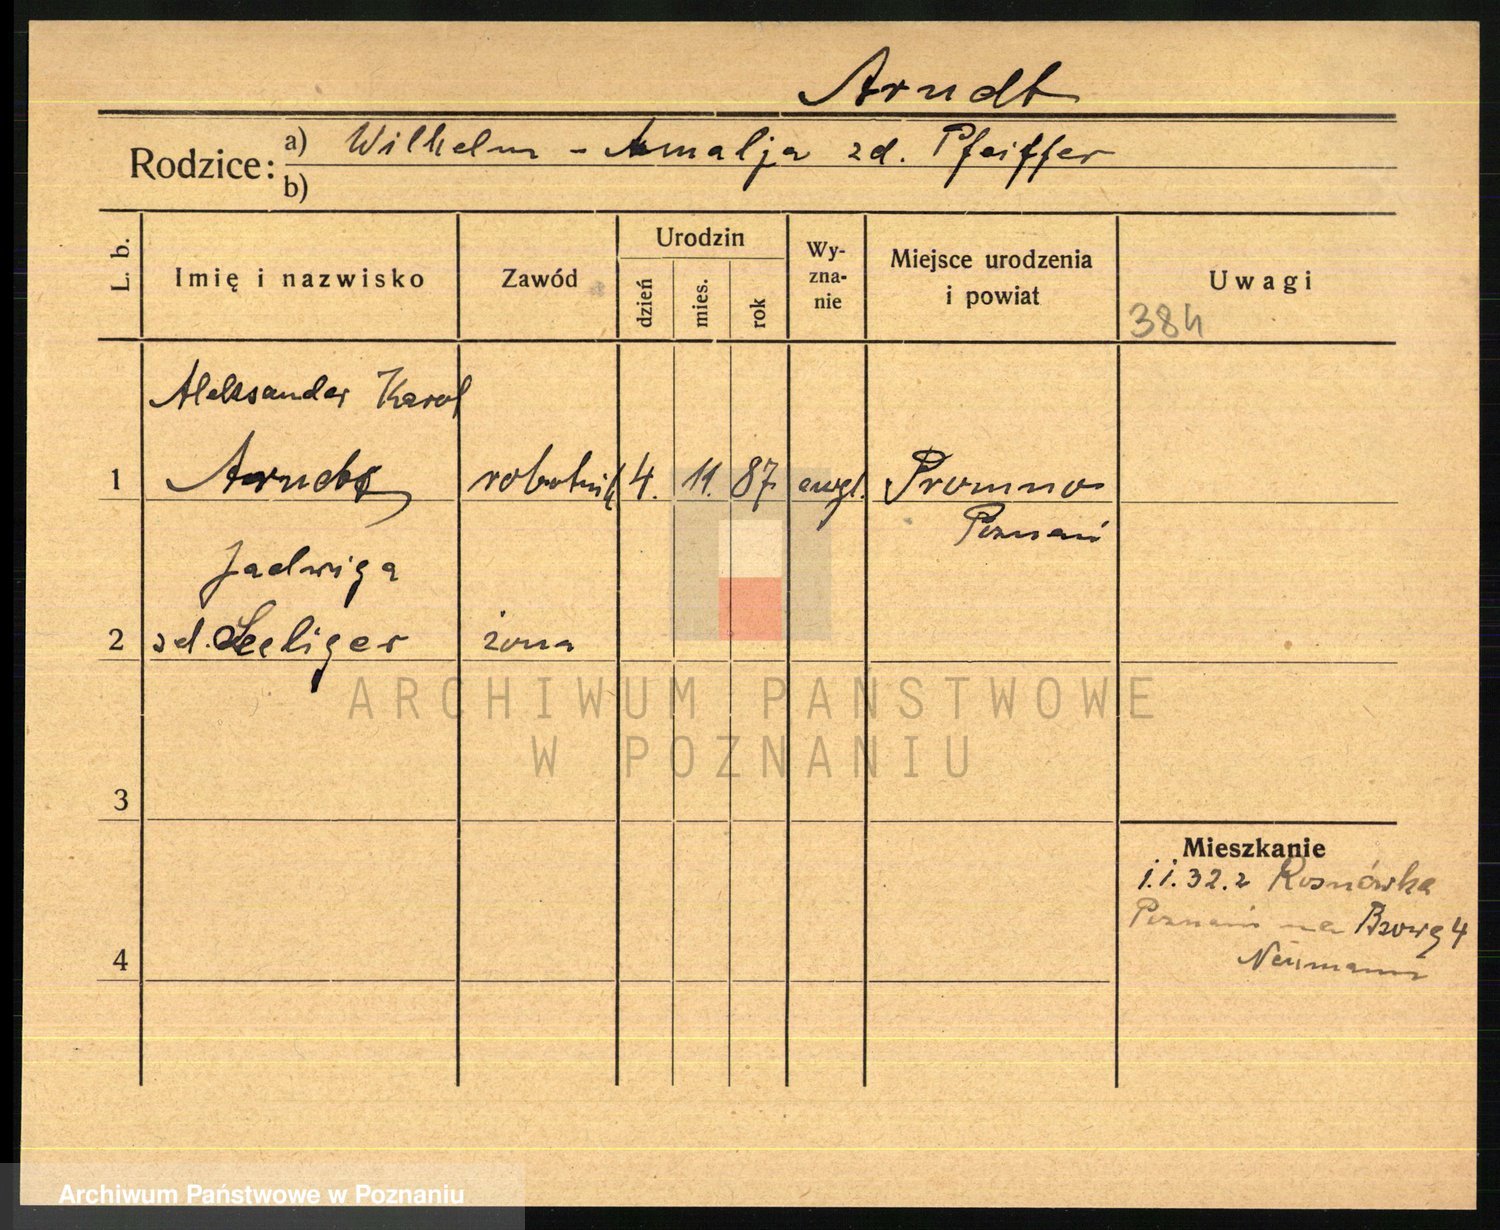 Arndt
Rodzice:
a) Wilhelm - Amalja zd. Pfeiffer
b)
L. b.
Imię i nazwisko
Zawód
Urodzin
dzień
mies.
rok
Wy-
zna-
nie
Miejsce urodzenia
i powiat
Uwagi
384
Aleksander Karol
1 Arndt robotnik 4. 11. 87 ewgl. Promno
Poznań
Jadwiga
2 zd. Seeliger żona
ARCHIWUM PAŃSTWOWE
W POZNANIU
3
Mieszkanie
1.1.32. z Rosnówka
Poznań na 4
4
Neumann
Archiwum Państwowe w Poznaniu